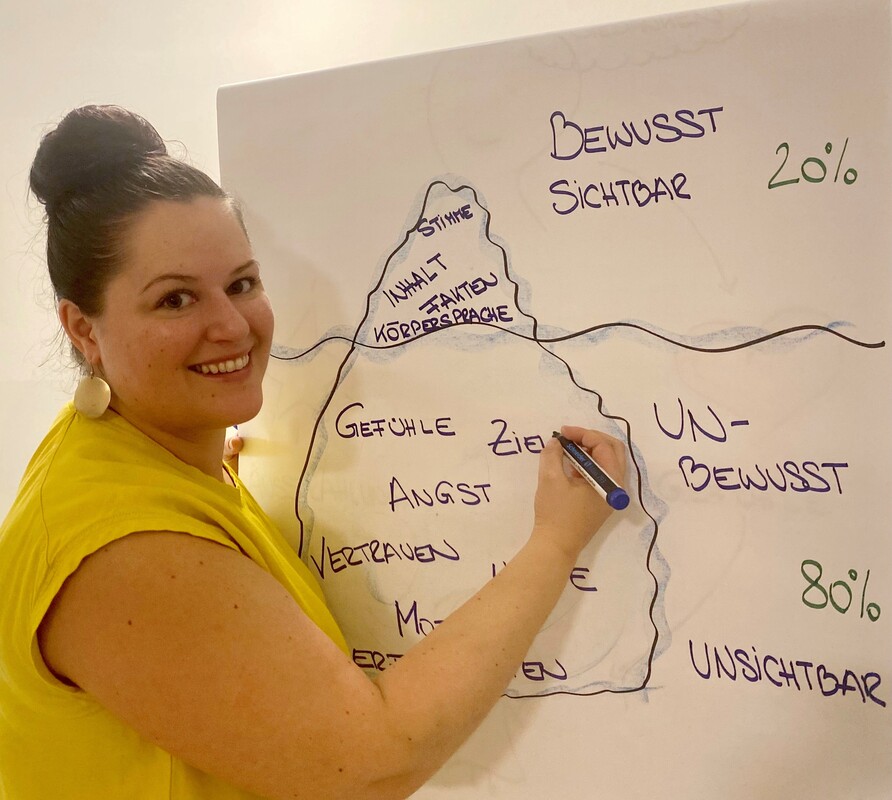 BEWUSST
SICHTBAR
20%
STIMME
INHALT
FAKTEN
KÖRPERSPRACHE
GEFÜHLE
ANGST
VERTRAUEN
UN-
BEWUSST
80%
UNSICHTBAR